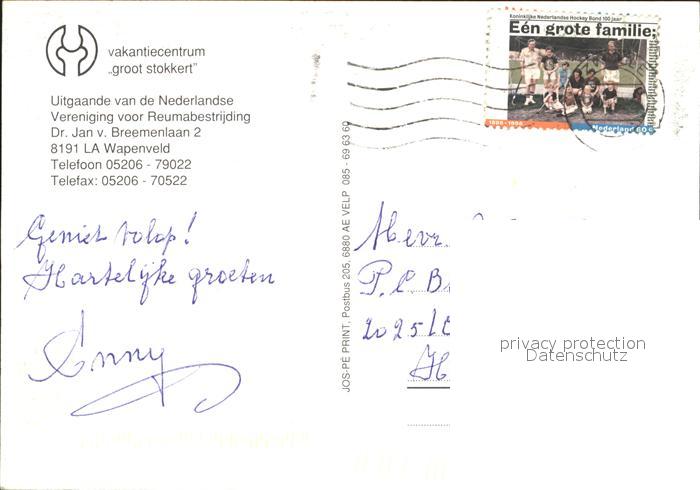 vakantiecentrum
„groot stokkert"
Uitgaande van de Nederlandse
Vereniging voor Reumabestrijding
Dr. Jan v. Breemenlaan 2
8191 LA Wapenveld
Telefoon 05206 - 79022
Telefax: 05206 - 70522
Geniet volop!
Hartelijke groeten
Anny
JOS-PÉ PRINT, Postbus 205, 6880 AE VELP 085 - 69 63 60
Koninklijke Nederlandse Hockey Bond 100 jaar
Eén grote familie;
1898-1998
Nederland 80 c
Mevr.
P.C. B
2025
H
privacy protection
Datenschutz